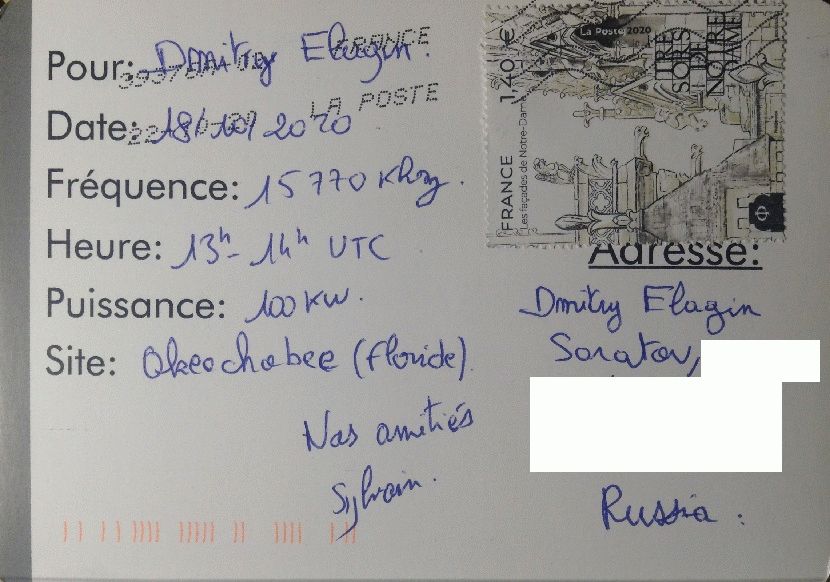 Pour: Dmitry Elagin.
FRANCE
LA POSTE
Date: 18/10/2020
Fréquence: 15770 Khz.
Heure: 13h - 14h UTC
Puissance: 100 KW.
Site: Okeechobee (Floride)
Nos amitiés
Sylvain.
La Poste 2020
1,40 €
TRÉSORS DE NOTRE DAME
FRANCE
Les façades de Notre-Dame
Adresse:
Dmitry Elagin
Saratov,
Russia.